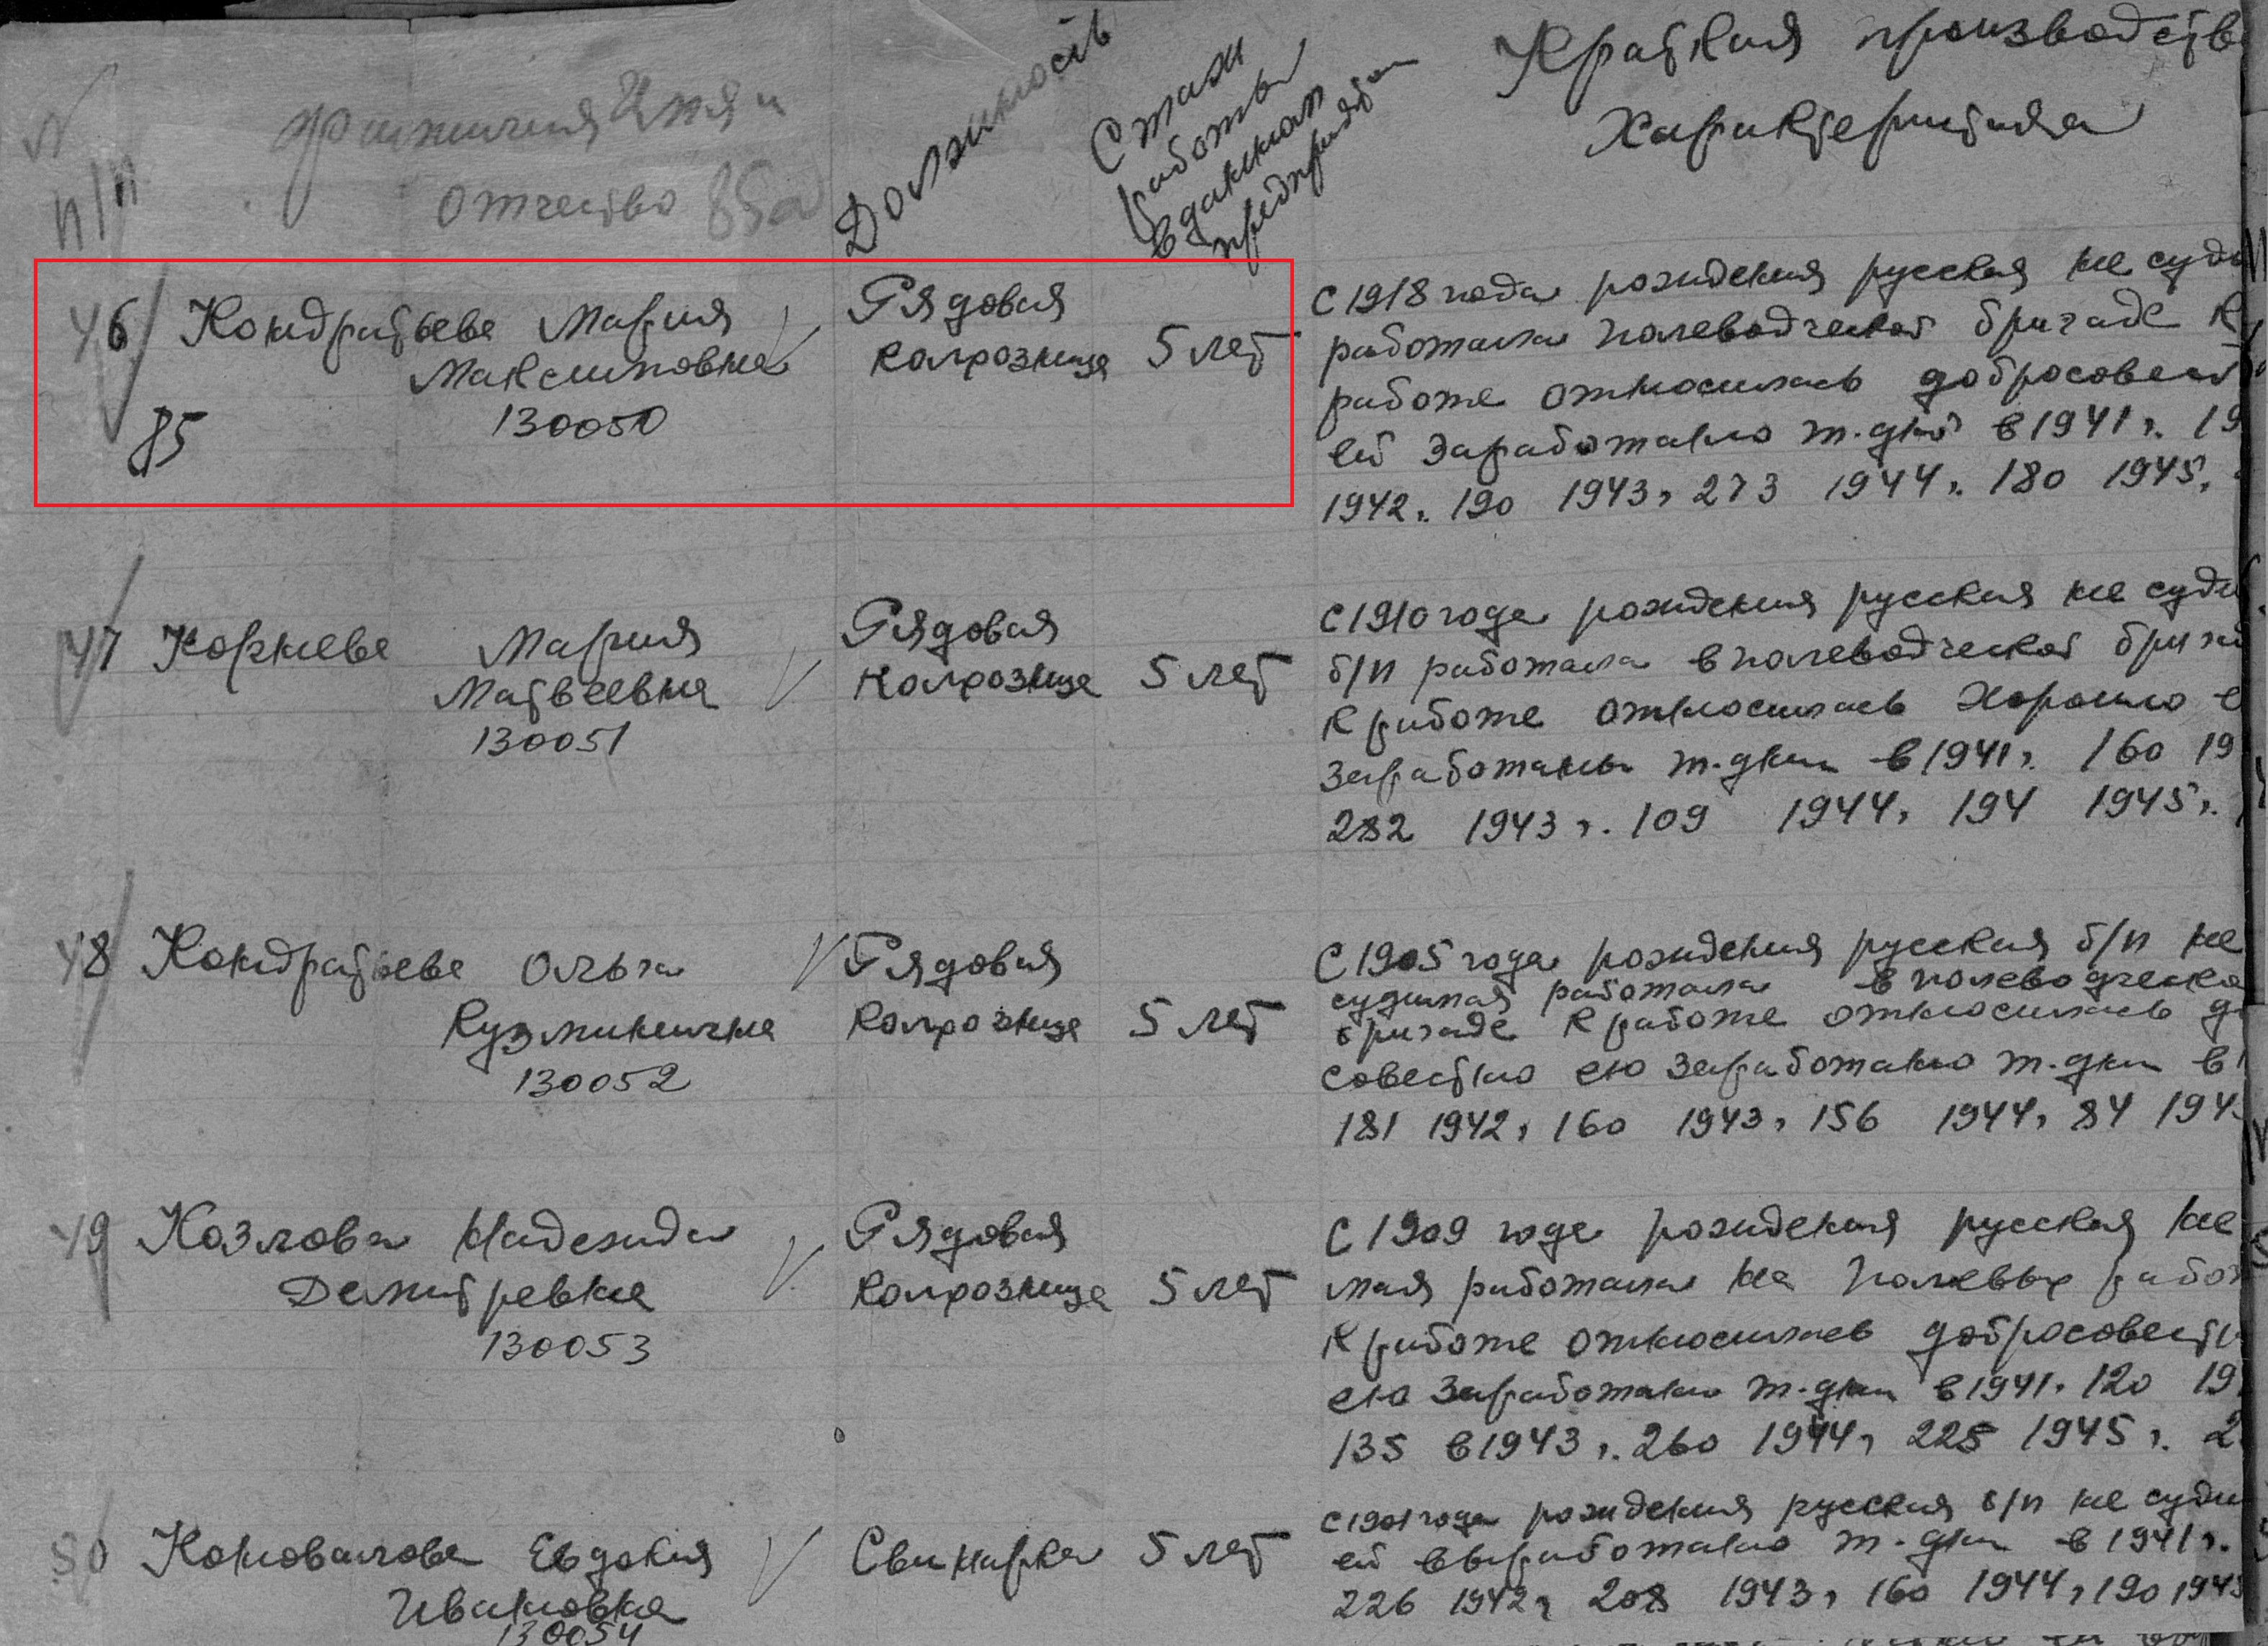 № п/п
Фамилия Имя и
отчество 85а
Должность
Стаж
работы
в данном
предприятии
Краткая производств
Характеристика
46 Кондратьева Мария
Максимовна
130050
85
Рядовая
колхозница 5 лет
С 1918 года рождения русская не суди
работала полеводческой бригаде к
работе относилась добросовест
ей заработано т.дней в 1941 г. 19
1942 г. 190 1943 г. 273 1944 г. 180 1945 г.
47 Коржнева Мария
Матвеевна
130051
Рядовая
колхозница 5 лет
С 1910 года рождения русская не суди
б/п работала в полеводческой бригад
к работе относилась хорошо е
заработаны т.дни в 1941 г. 160 19
282 1943 г. 109 1944 г. 194 1945 г.
48 Кондратьева Ольга
Кузминична
130052
Рядовая
колхозница 5 лет
С 1905 года рождения русская б/п не
судимая работала в полеводческо
бригаде к работе относилась до
совестно ею заработано т.дни в 1
181 1942 г. 160 1943 г. 156 1944 г. 84 194
49 Козлова Надежда
Дмитревна
130053
Рядовая
колхозница 5 лет
С 1909 года рождения русская не
мая работала на полевых работ
к работе относилась добросовестн
ею заработано т.дни в 1941 г. 120 19
135 в 1943 г. 260 1944 г. 225 1945 г. 2
50 Коновалова Евдокия
Ивановна
130054
Свинарка 5 лет
С 1901 года рождения русская б/п не суди
ей выработано т.дни в 1941 г.
226 1942 г. 208 1943 г. 160 1944 г. 190 1945